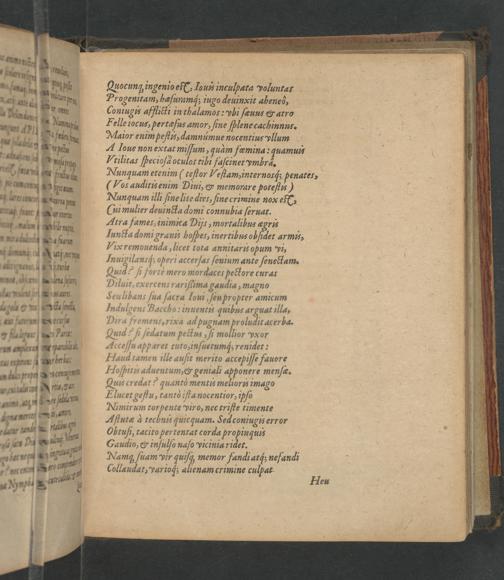 Quocunq, ingenio est, Iouis inculpata voluntat
Progenitam, hæsurumq; iugo deuinxit abeneô,
Coniugis afflicti in thalamos: vbi sæuus & atro
Felle iocus, pertæsus amor, sine splene cachinnus.
Maior enim pestis, damnúmue nocentius vllum
A Ioue non extat missum, quàm fœmina: quamuis
Vtilitas speciosâ oculos tibi fascinet vmbrâ.
Nunquam etenim (testor Vestam, internosq; penates,
(Vos audistis enim Diui, & memorare potestis)
Nunquam illi sine lite dies, sine crimine nox est,
Cui mulier deuincta domi connubia seruat.
Atra fames, inimica Dijs, mortalibus ægris
Iuncta domi grauis hospes, inertibus obsidet armis,
Vix remouenda, licet tota annitaris opum vi,
Inuigilansq; operi accersas senium ante senectam.
Quid? si fortè mero mordaces pectore curas
Diluit, exercens rarissima gaudia, magno
Seu libans sua sacra Ioui, seu propter amicum
Indulgens Baccho: inuentis quibus arguat illa,
Dira fremens, rixa ad pugnam proludit acerba.
Quid? si sedatum pectus, si mollior vxor
Accessu apparet tuto, insuetumq; renidet:
Haud tamen ille ausit merito accepisse fauore
Hospitis aduentum, & geniali apponere mensæ.
Quis credat? quantò mentis melioris imago
Elucet gestu, tantò ista nocentior, ipso
Nimirum torpente viro, nec triste timente
Astutæ à technis quicquam. Sed coniugis error
Obtusi, tacito pertentat corda propinquis
Gaudio, & insulso naso vicinia ridet.
Namq; suam vir quisq, memor fandi atq; nefandi
Collaudat, varioq; alienam crimine culpat
Heu